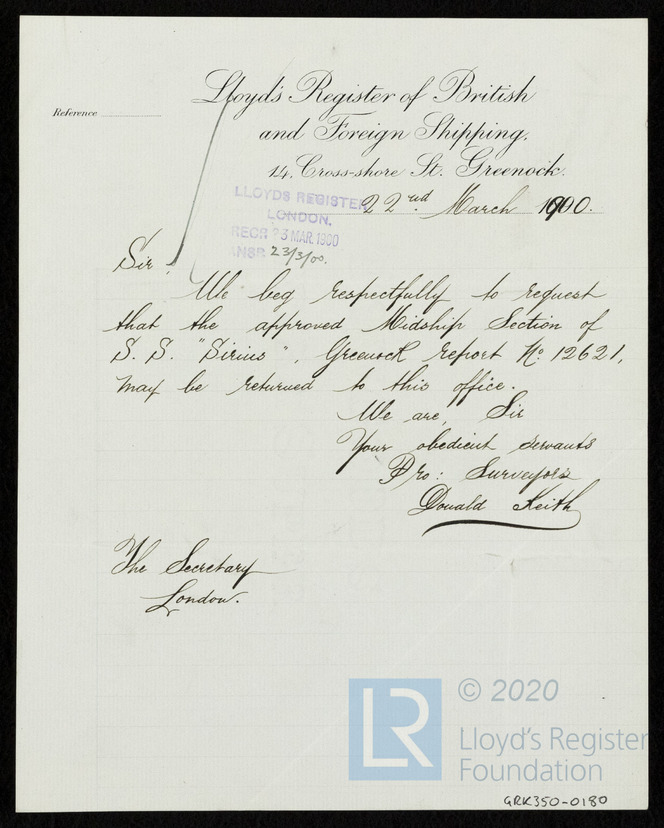 Reference
Lloyd's Register of British
and Foreign Shipping.
14, Cross-shore St. Greenock.
22nd March 1900.
LLOYDS REGISTER
LONDON.
RECD 23 MAR. 1900
ANSD 23/3/00.
Sir,
We beg respectfully to request
that the approved Midship Section of
S. S. "Sirius", Greenock report No 12621,
may be returned to this office.
We are, Sir
Your obedient servants
Pro: Surveyors
Donald Keith
The Secretary
London.
LR
© 2020
Lloyd's Register
Foundation
GRK350-0180